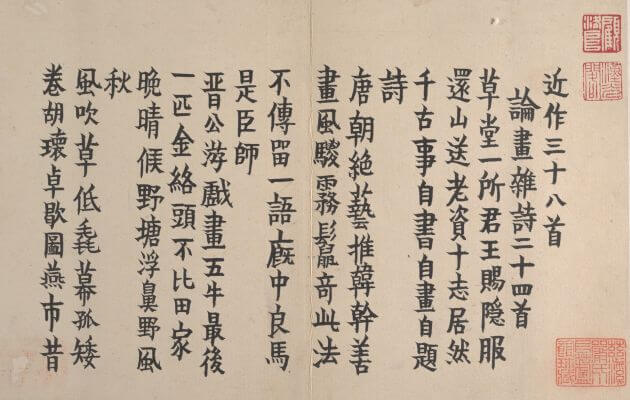 顧洛阜
漢光閣
近作三十八首
論畫雜詩二十四首
草堂一所君王賜隐服
還山送老資十志居然
千古事自書自畫自題
詩
唐朝絶藝推韓幹善
畫風騣霧鬛竒此法
不傳留一語廐中良馬
是臣師
晋公游戲畫五牛最後
一匹金絡頭不比田家
晚晴候野塘浮鼻野風
秋
風吹草低毳幕孤矮
卷胡瓌卓歇圖燕市昔